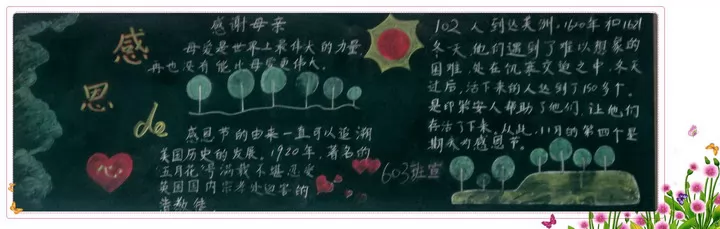 感
恩
de
心
感谢母亲
母爱是世界上最伟大的力量,
再也没有能比母爱更伟大。
感恩节的由来一直可以追溯
美国历史的发展。1920年,著名的
五月花号满载不堪忍受
英国国内宗教处迫害的
清教徒
603班宣
102人到达美洲。1620年和1621
冬天,他们遇到了难以想象的
困难,处在饥寒交迫之中,冬天
过后,活下来的人达到了150多个。
是印第安人帮助了他们,让他们
存活了下来。从此,11月的第四个星
期天为感恩节。